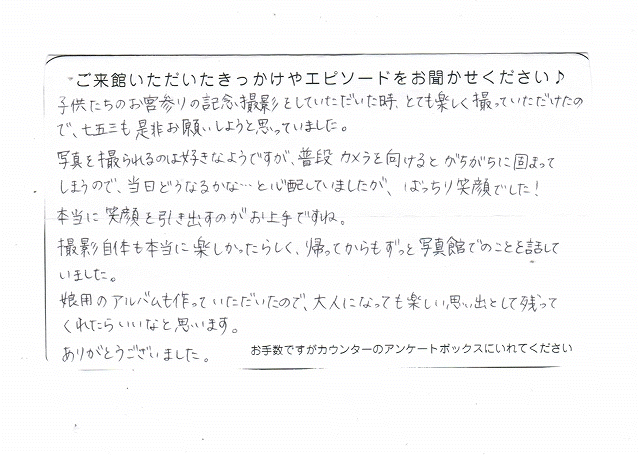 ご来館いただいたきっかけやエピソードをお聞かせください♪
子供たちのお宮参りの記念撮影をしていただいた時、とても楽しく撮っていただけたの
で、七五三も是非お願いしようと思っていました。
写真を撮られるのは好きなようですが、普段カメラを向けるとがちがちに固まって
しまうので、当日どうなるかな…と心配していましたが、ばっちり笑顔でした!
本当に笑顔を引き出すのがお上手ですね。
撮影自体も本当に楽しかったらしく、帰ってからもずっと写真館でのことを話して
いました。
娘用のアルバムも作っていただいたので、大人になっても楽しい思い出として残って
くれたらいいなと思います。
ありがとうございました。
お手数ですがカウンターのアンケートボックスにいれてください